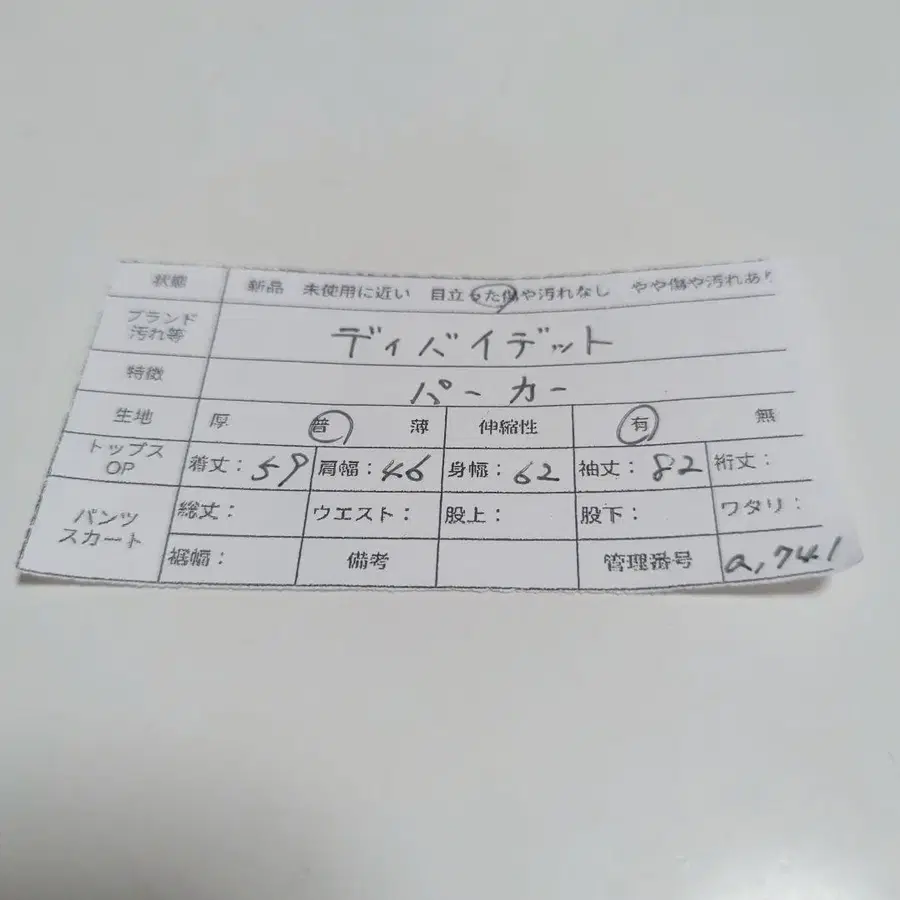 状態 新品 未使用に近い 目立った傷や汚れなし やや傷や汚れあり
ブランド
汚れ等 ディバイデット
特徴 パーカー
生地 厚 普 薄 伸縮性 有 無
トップス
OP 着丈：59 肩幅：46 身幅：62 袖丈：82 裄丈：
パンツ
スカート 総丈： ウエスト： 股上： 股下： ワタリ：
裾幅： 備考 管理番号 a,741